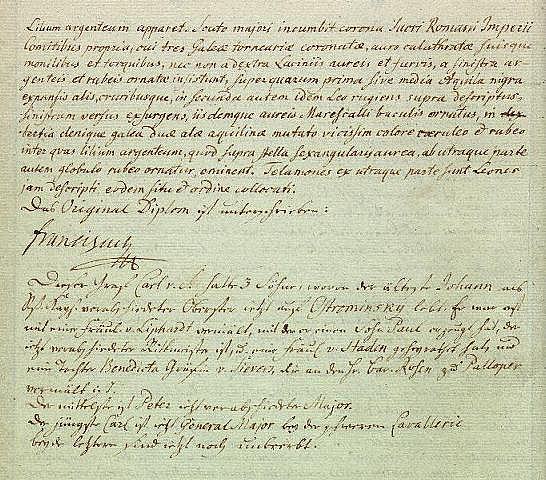 Lilium argenteum apparet. Scuto majori incumbit corona Sacri Romani Imperii
Comitibus propria, cui tres Galeæ torneariæ coronatæ, auro calathratæ suisque
monilibus et torquibus, nec non a dextra Laciniis aureis et furvis, a sinistra ar-
genteis et rubeis ornatæ insistunt, super quarum prima sive media Aquila nigra
expansis alis, cruribusque, in secunda autem idem Leo rugiens supra descriptus,
sinistram versus exsurgens, iisdemque aureis Marescalli baculis ornatus, in dex
tertia denique galea Duæ alæ aquilinæ mutato vicissim colore cæruleo et rubeo
inter quas Lilium argenteum, quod supra stella sexangularis aurea, ab utraque parte
autem globulo rubeo ornatur, eminent. Telamones ex utraque parte sunt Leones
jam descripti eodem situ et ordine collocati.
Das Original Diplom ist unterschrieben:
Franciscus
Dieser Graf Carl v. S. hatte 3 Söhne, wovon der älteste Johann als
verabschiedeter Obrister jetzt auf Ostrominsky lebt. Er war
mit eine Fräul. v. Liphardt vermält, mit der er einen Sohn Paul erzeugt hat, der
jetzt verabschiedeter Rittmeister ist, u. eine Fräul v. Staden geheyrathet hat, und
eine Tochter Benedicta Gräfin v. Sievers, die an den Hr. Bar. Rosen zu Palloper
vermält ist.
Der mittelste ist Peter jetzt verabschiedeter Major.
Der jüngste Carl ist jetzt General Major bey der Cavallerie
beyde letztern sind jetzt noch unbeerbt.